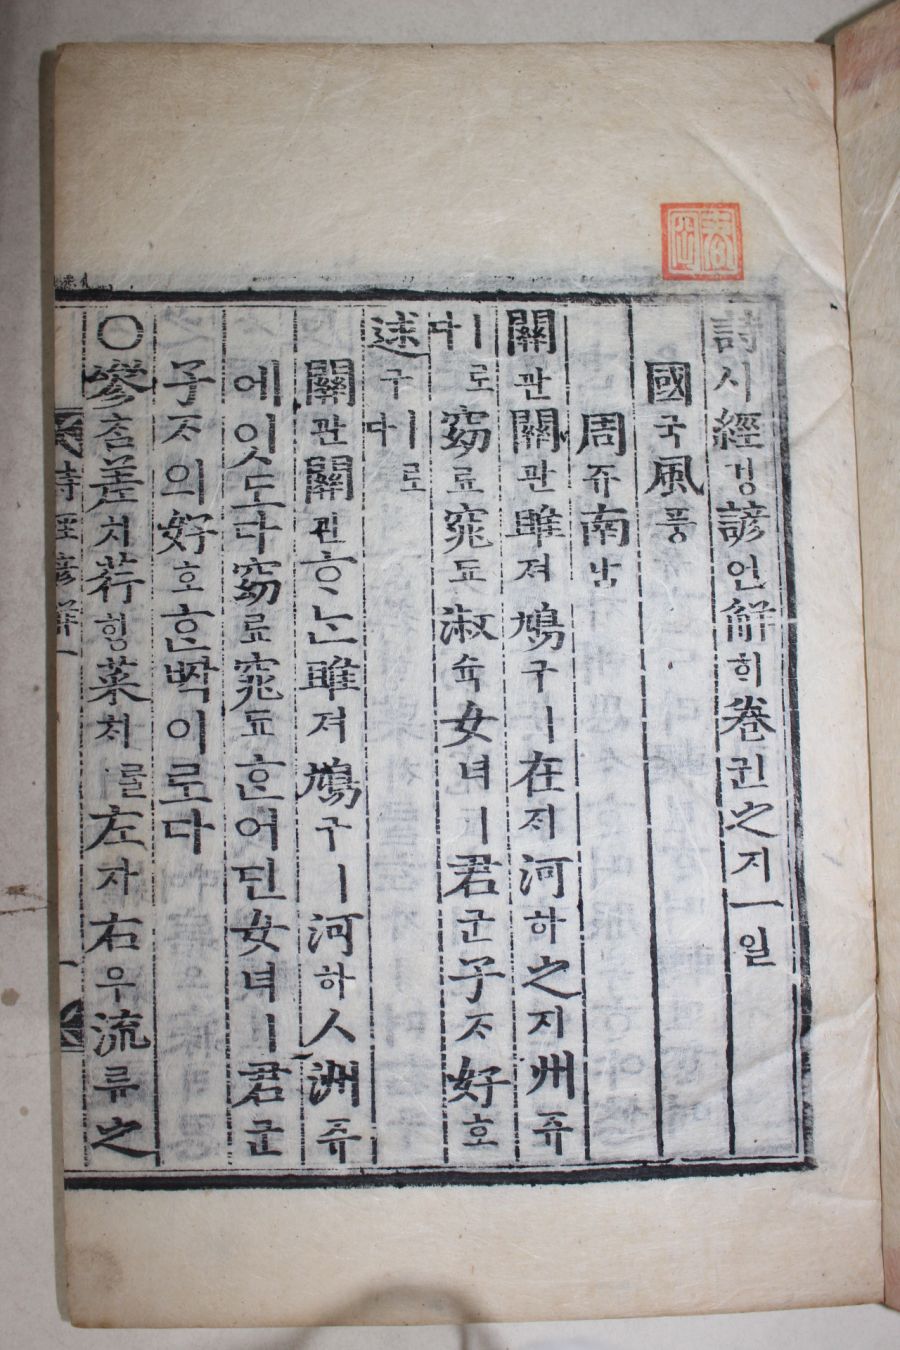 詩시經겅諺언解ᄒᆡ卷권之지一일
國국風풍
周쥬南남
關관關관雎져鳩구ㅣ在ᄌᆡ河하之지洲쥬
ㅣ로다窈료窕됴淑슉女녀ㅣ君군子ᄌᆞ好호
逑구ㅣ로다
關관關관ᄒᆞᄂᆞᆫ雎져鳩구ㅣ河하人洲쥬
에잇도다窈료窕됴ᄒᆞᆫ어딘女녀ㅣ君군
子ᄌᆞ의好호ᄒᆞᆫᄧᅡᆨ이로다
○參참差치荇ᄒᆡᆼ菜ᄎᆡ를左자右우流류之
詩經諺解一